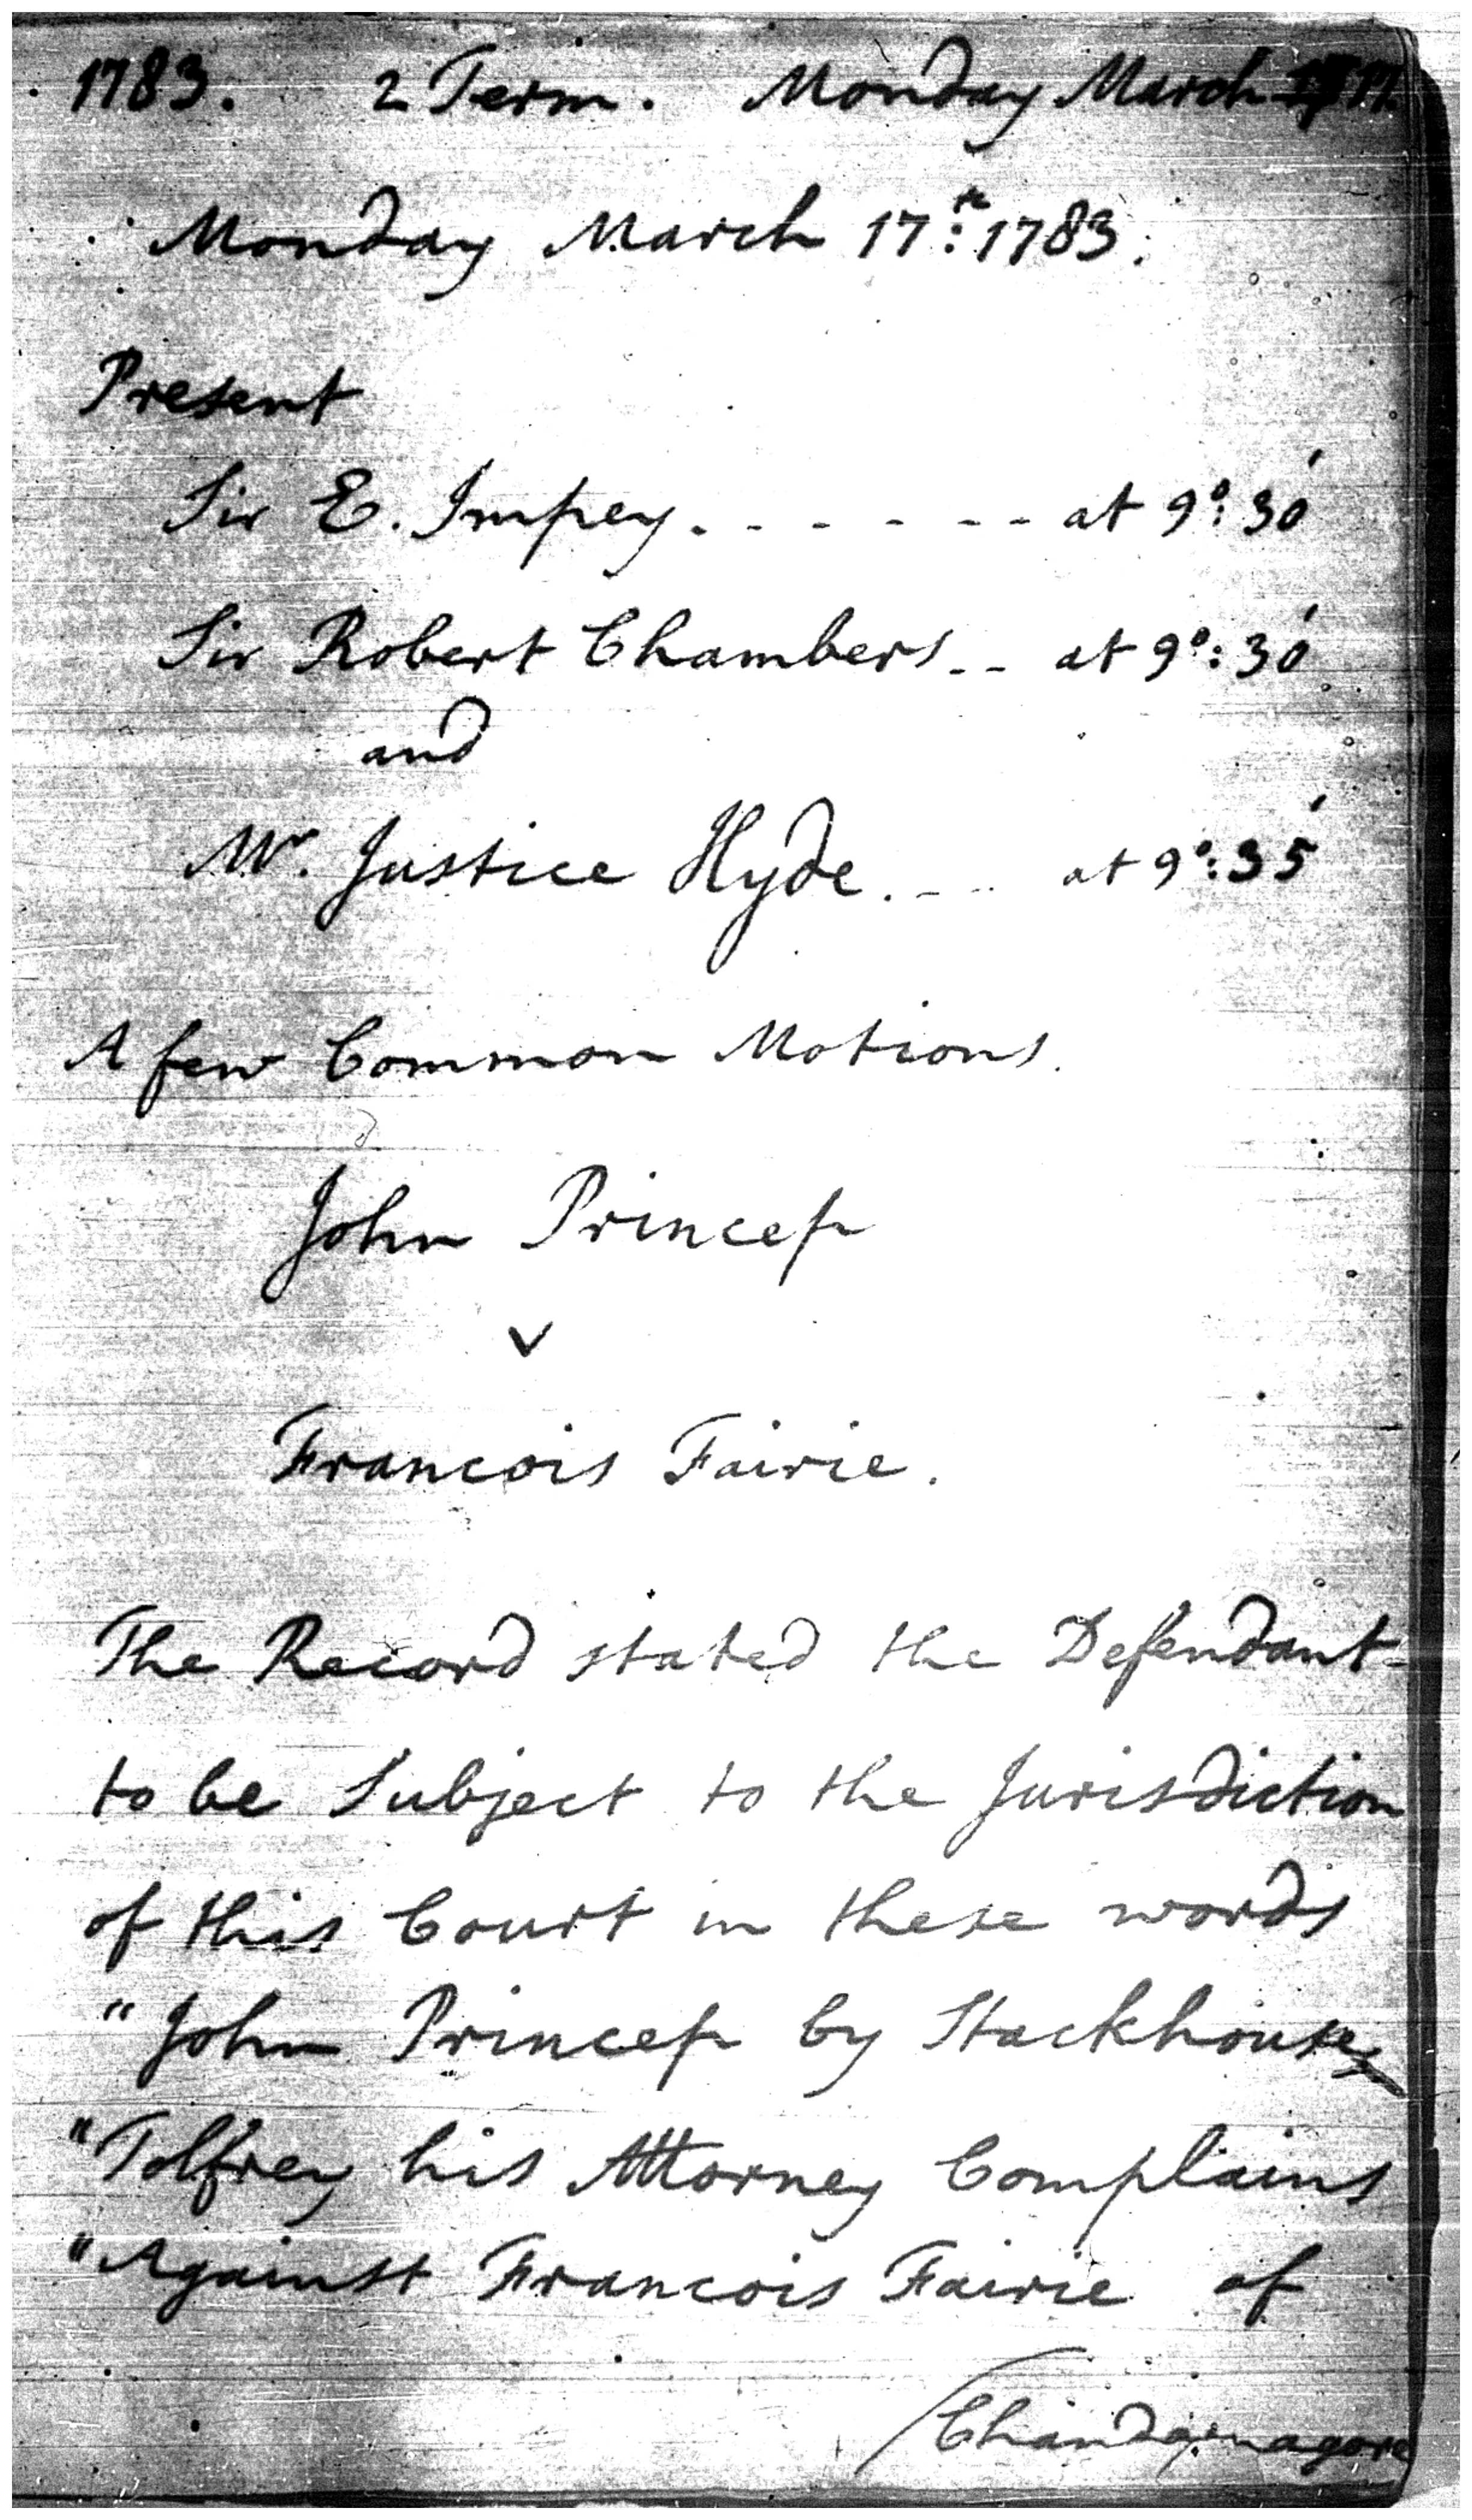 1783. 2 Term. Monday March 17.
Monday March 17:th 1783.
Present
Sir E. Impey. - - - - - - at 9°: 30'
Sir Robert Chambers - - at 9°: 30'
and
Mr. Justice Hyde. - - - at 9°: 35'
A few Common Motions.
John Princep
v
Francois Fairie.
The Record stated the Defendant
to be Subject to the Jurisdiction
of this Court in these words
"John Princep by Stackhouse
"Tolfrey his Attorney Complains
"Against Francois Fairie of
/Chandernagore